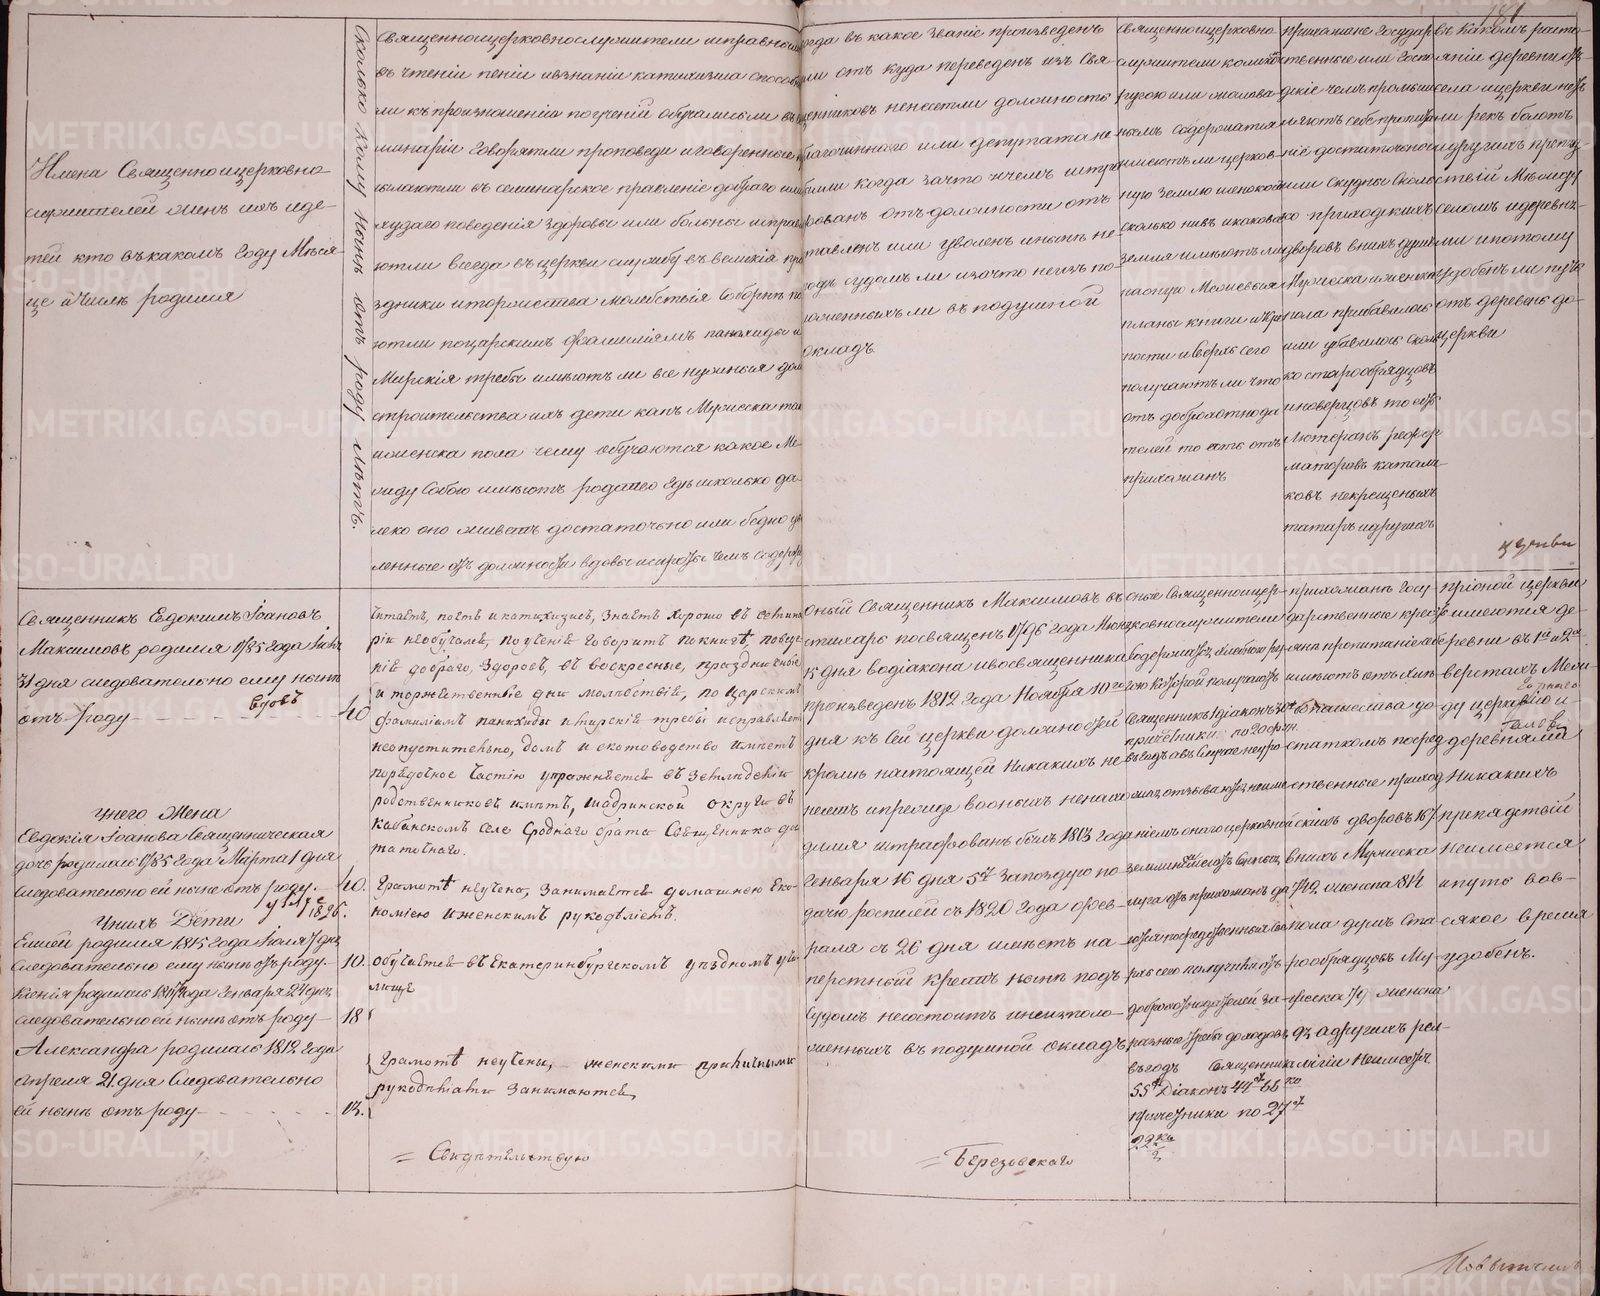 181
Имена Священноицерковно
служителей женъ ихъ иде-
тей кто въ какомъ году Мѣся
це и Числѣ родился
Сколько кому нынѣ отъ роду лѣтъ.
Священноицерковнослужители исправно ли
въ чтеніи пѣніи изнаніи катихизиса способны
ли къ произношенію поученій обучались ли въ се
минаріи Говорятъ ли проповеди иговоренные при
сылаютъ ли въ семинарское правленіе добраго или
худаго поведенія здоровы или больны исправл
яютъ ли всегда въ церкви службу въ великія пра
здники иторжества молебствія Соборнѣ по
ютъ ли поцарскимъ фамиліямъ панихиды и
Мирскія требы имѣютъ ли все нужныя дом
строительства ихъ дети какъ Мужеска так
иженска пола чему обучаются какое Ме
жду Собою имѣютъ родство Едѣ исколько да
леко оно живетъ достаточно или бедно ув
ленные отъ должности вдовы исироты чемъ содерж
когда въ какое званіе произведенъ
или отъ куда переведенъ изъ Свя
щенниковъ ненесетли должность
благочиннаго или депутата не
былъ ли когда зачто ичемъ штра
фованъ отъ должности отъ
ставленъ или уволенъ инынѣ не
подъ судомъ ли изачто неизъ по
ложенныхъ ли въ подушной
окладъ.
Священноицерковно
служители коликою
ругою или жалова
ньемъ содержатся
имеютъ ли церков-
ную землю ипокой
сколько нивъ икакова
земля имѣютъ ли
на оную Межевыя
планы книги и кре
пости исверхъ сего
получаютъ ли что
отъ доброхотнода
телей то есть отъ
прихожанъ
прихожане Государ
ственные или Госп
дскіе чемъ промыш
ляютъ себе пропита
ніе достаточно
или скудны Сколь
ко приходскихъ
дворовъ внихъ душъ
Мужеска иженска
пола прибавилось
или убавилось Сколь
ко старообрядцовъ
иноверцовъ то есть
Лютеранъ рефор
маторовъ катали
ковъ некрещеныхъ
татаръ идругихъ
въ Какомъ разсто-
яніи деревни отъ
села ицеркви нетъ
ли рек болотъ
идругихъ препят
ствій Между
селомъ идеревня-
ми ипотому
удобенъ ли путь
отъ деревень до
церкви
церкви
Священникъ Евдокимъ Іоановъ
Максимовъ родился 1785 года Іюля
31 дня следовательно ему нынѣ
отъ роду вдовъ 40
Читаетъ, поетъ икатихизисъ, знаетъ хорошо въ семина
ріи необучался, поученіе говоритъ покнигѣ, поведе
нія добраго, здоровъ, въ воскресные, праздничные
и торжественные дни молебствіи, по Царскимъ
фамиліямъ панихиды имирскія требы исправляетъ
неопустительно, домъ и скотоводство имѣетъ
порядочное частію упражняется въ земледѣліи
родственниковъ имѣетъ, Шадринской округи въ
Кабанскомъ селе Сроднаго брата Священника до
статочнаго.
оный Священникъ Максимовъ въ
стихарь посвященъ 1796 года Июня
к дня водіакона ивосвященника
произведенъ 1812 года Ноября 10го
дня къ Сей церкви должностей
кромѣ настоящей Никакихъ не
несетъ ипрежде воонныхъ ненахо
дился штрафованъ былъ 1813 года
Генваря 16 дня 5р запоздую по
дачу росписей съ 1820 года Фев-
раля съ 26 дня имѣетъ на-
перстный крестъ нынѣ подъ
Судомъ несостоитъ инеизполо-
женныхъ въ подушной окладъ,
оные Священноицер-
ковнослужители
Содержатся хлебною ру
гою Которой получаютъ
Священникъ Идіаконъ 30
причетники по 20 пуд.
добровольнодателей за-
разные требы доходовъ
въ годъ Священникъ
55р Діаконъ 44р 66 ко
причетники по 27р
22 ко
прихожанъ Госу
дарственные крест
яна пропитаніе себе
имеютъ отъ хлѣ
бопашества до-
статкомъ посред
ственные приход
скихъ дворовъ 167
внихъ Мужеска
742 женска 814
пола душъ Ста
рообрядцовъ Му-
жеска 79 женска
92 адругихъ рел-
лигіи Неимеетъ
прионой церкви
имеются де-
ревни въ 1й и 2хъ
верстахъ Меж-
ду церковію и
деревнями
Никакихъ
препятствій
Неимеется
ипуть вов-
сякое время
удобенъ.
унего Жена
Евдокія Іоанова Священническая
дочь родилась 1785 года Марта 1 дня
Следовательно ей ныне отъ роду. 40.
Грамотѣ неучена, Занимается домашнею Эко-
номіею иженскимъ рукодѣліемъ.
Унихъ Дети
Елисей родился 1815 года Іюля 7 дня
Следовательно ему нынѣ отъ роду. 10.
обучается въ Екатеринбургскомъ уѣздномъ учи-
лище
Ксенія родилась 1807 года Генваря 24 дня
Следовательно ей нынѣ отъ роду 18
Александра родилась 1812 года
апреля 21 дня Следовательно
ей нынѣ отъ роду 13.
Грамотѣ неучены, женскими приличными
рукодѣліями занимаются,
Свидѣтельствую
Березовскаго